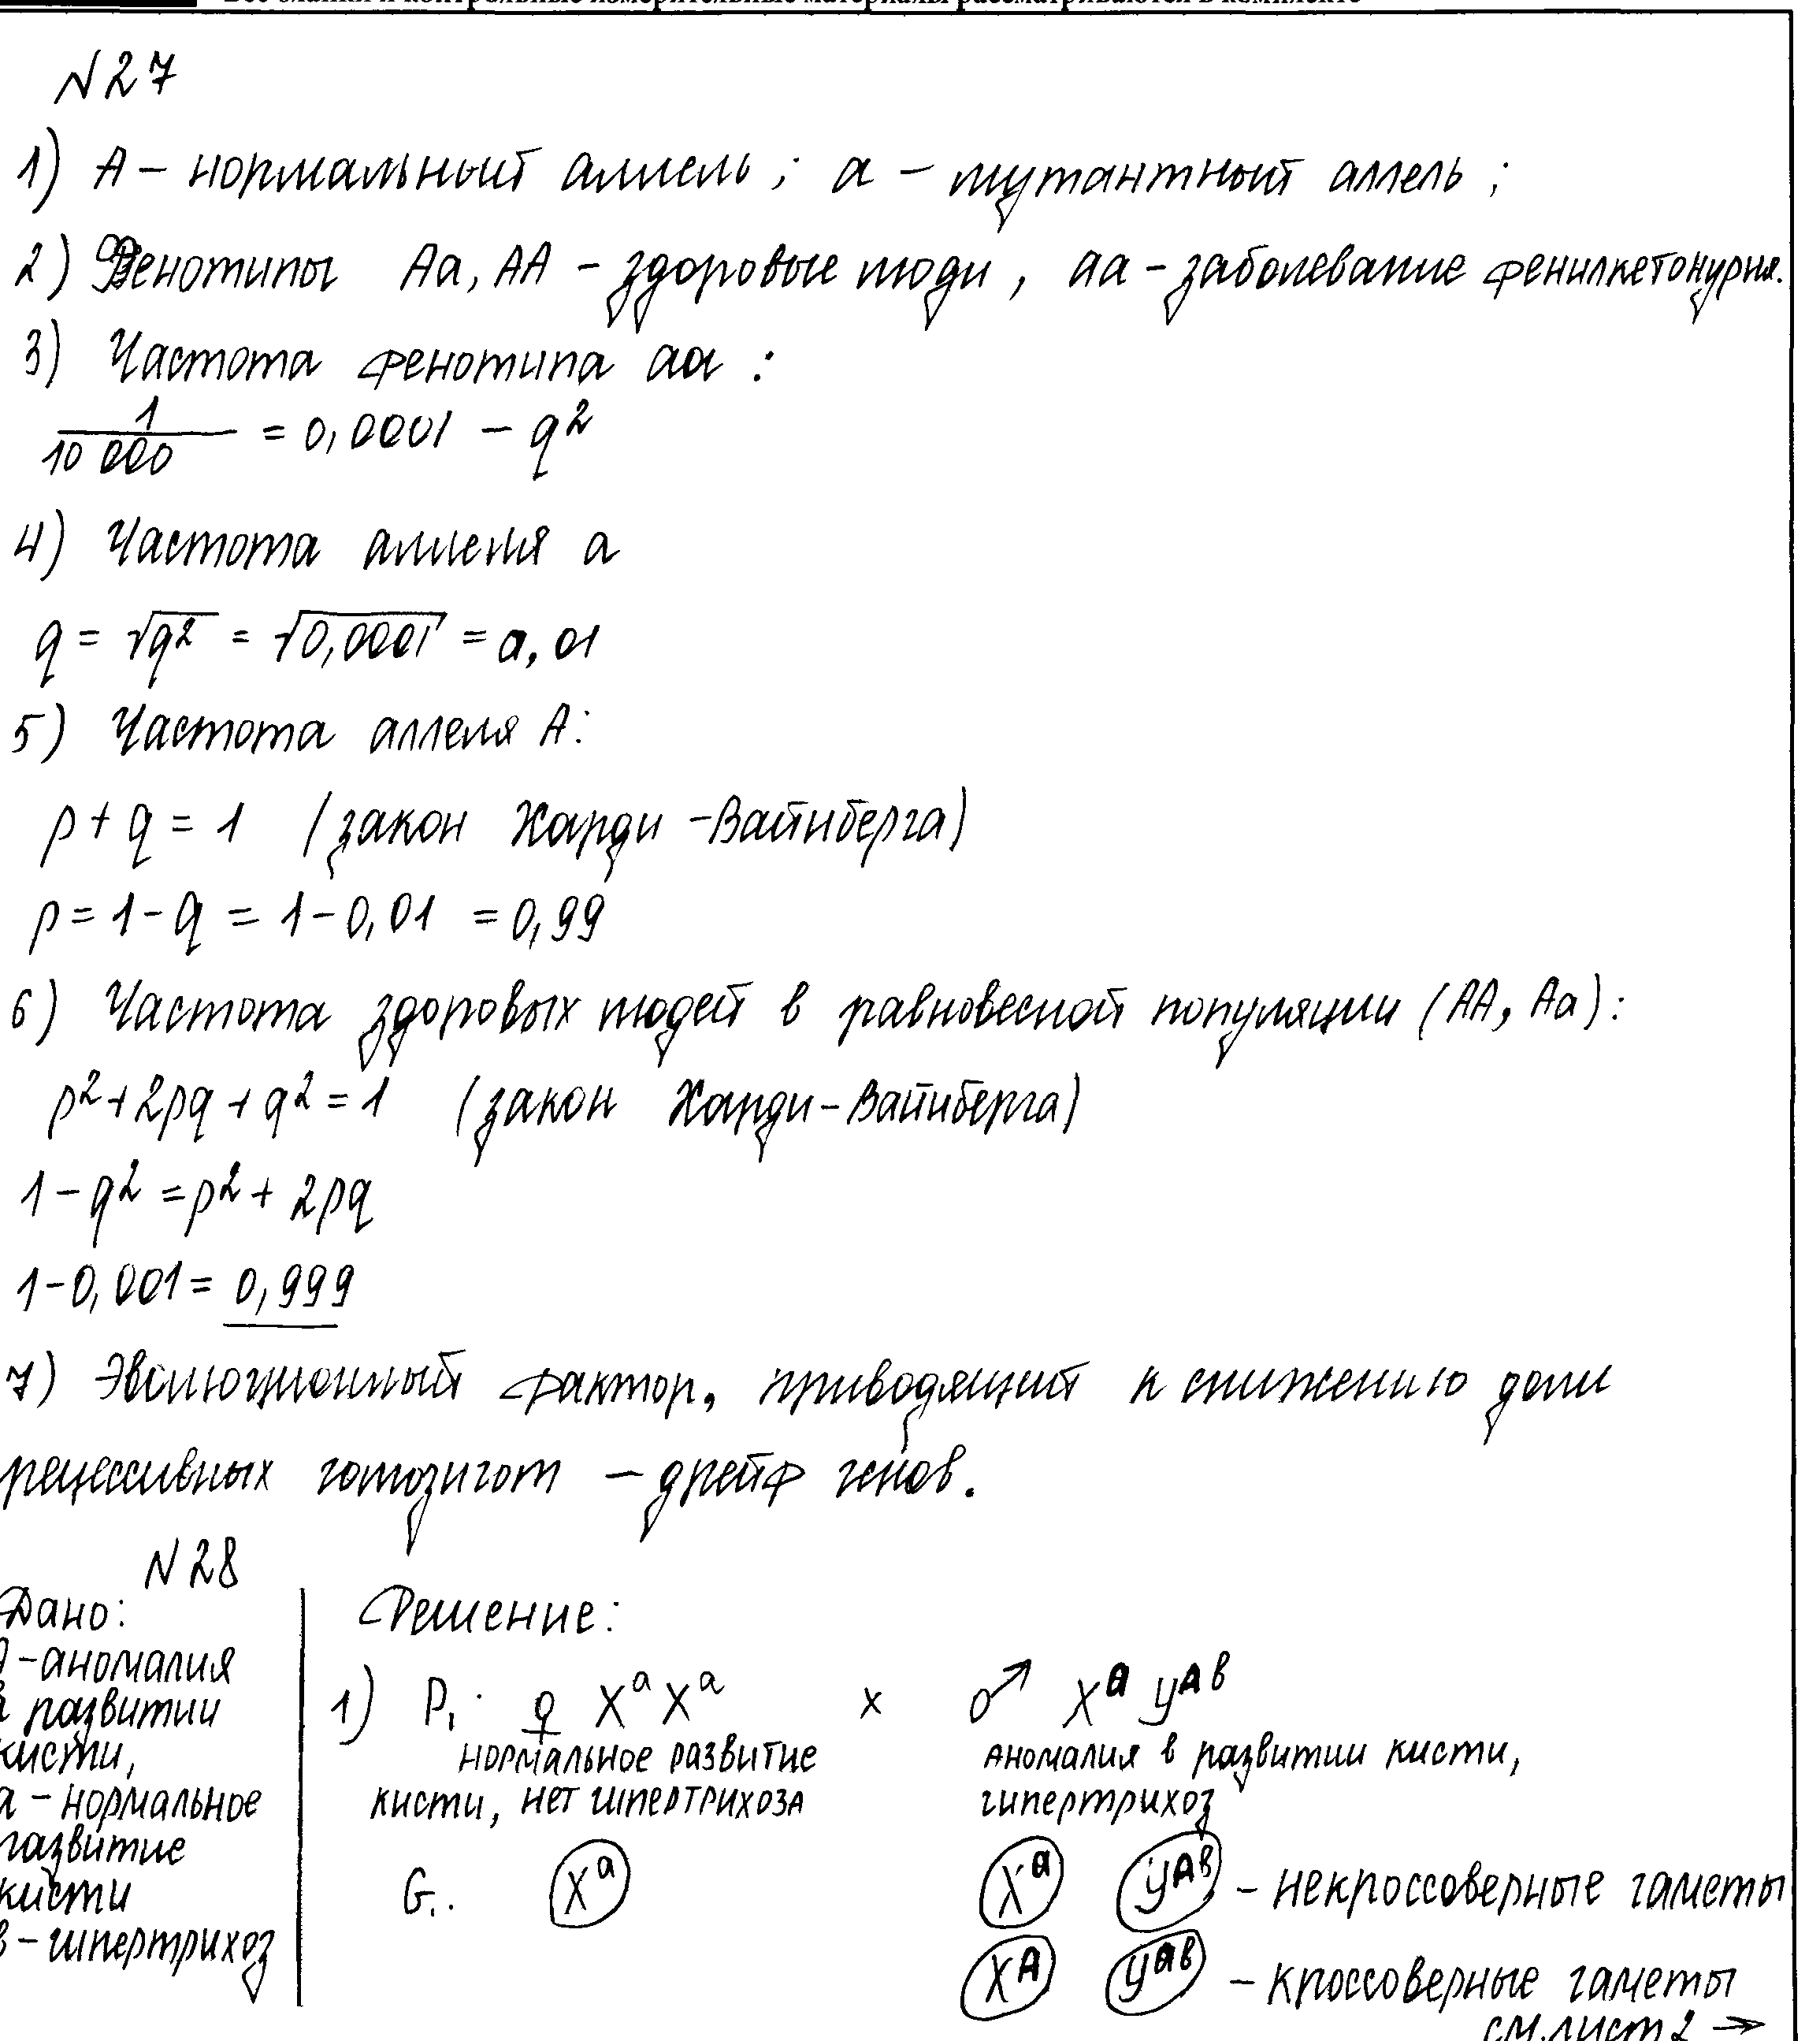 Все бланки и контрольные измерительные материалы рассматриваются в комплекте
N27
1) A – нормальный аллель ; a – мутантный аллель ;
2) Фенотипы Aa, AA – здоровые люди , aa – заболевание фенилкетонурия.
3) Частота фенотипа aa :
1
10 000 = 0,0001 – q²
4) Частота аллеля a
q = √q² = √0,0001 = 0,01
5) Частота аллеля A:
p + q = 1 (закон Харди-Вайнберга)
p = 1 – q = 1 – 0,01 = 0,99
6) Частота здоровых людей в равновесной популяции (AA, Aa):
p² + 2pq + q² = 1 (закон Харди-Вайнберга)
1 – q² = p² + 2pq
1 – 0,001 = 0,999
7) Эволюционный фактор, приводящий к снижению доли
рецессивных гомозигот – дрейф генов.
N28
Дано:
A – аномалия
в развитии
кисти,
a – нормальное
развитие
кисти
в – гипертрихоз
Решение:
1) P₁: ♀ Xᵃ Xᵃ x ♂ Xᵃ Yᴬᵇ
нормальное развитие кисти, нет гипертрихоза
аномалия в развитии кисти, гипертрихоз
G₁: Xᵃ Xᵃ Yᴬᵇ – некроссоверные гаметы
Xᴬ Yᵃᵇ – кроссоверные гаметы
см. лист 2 →